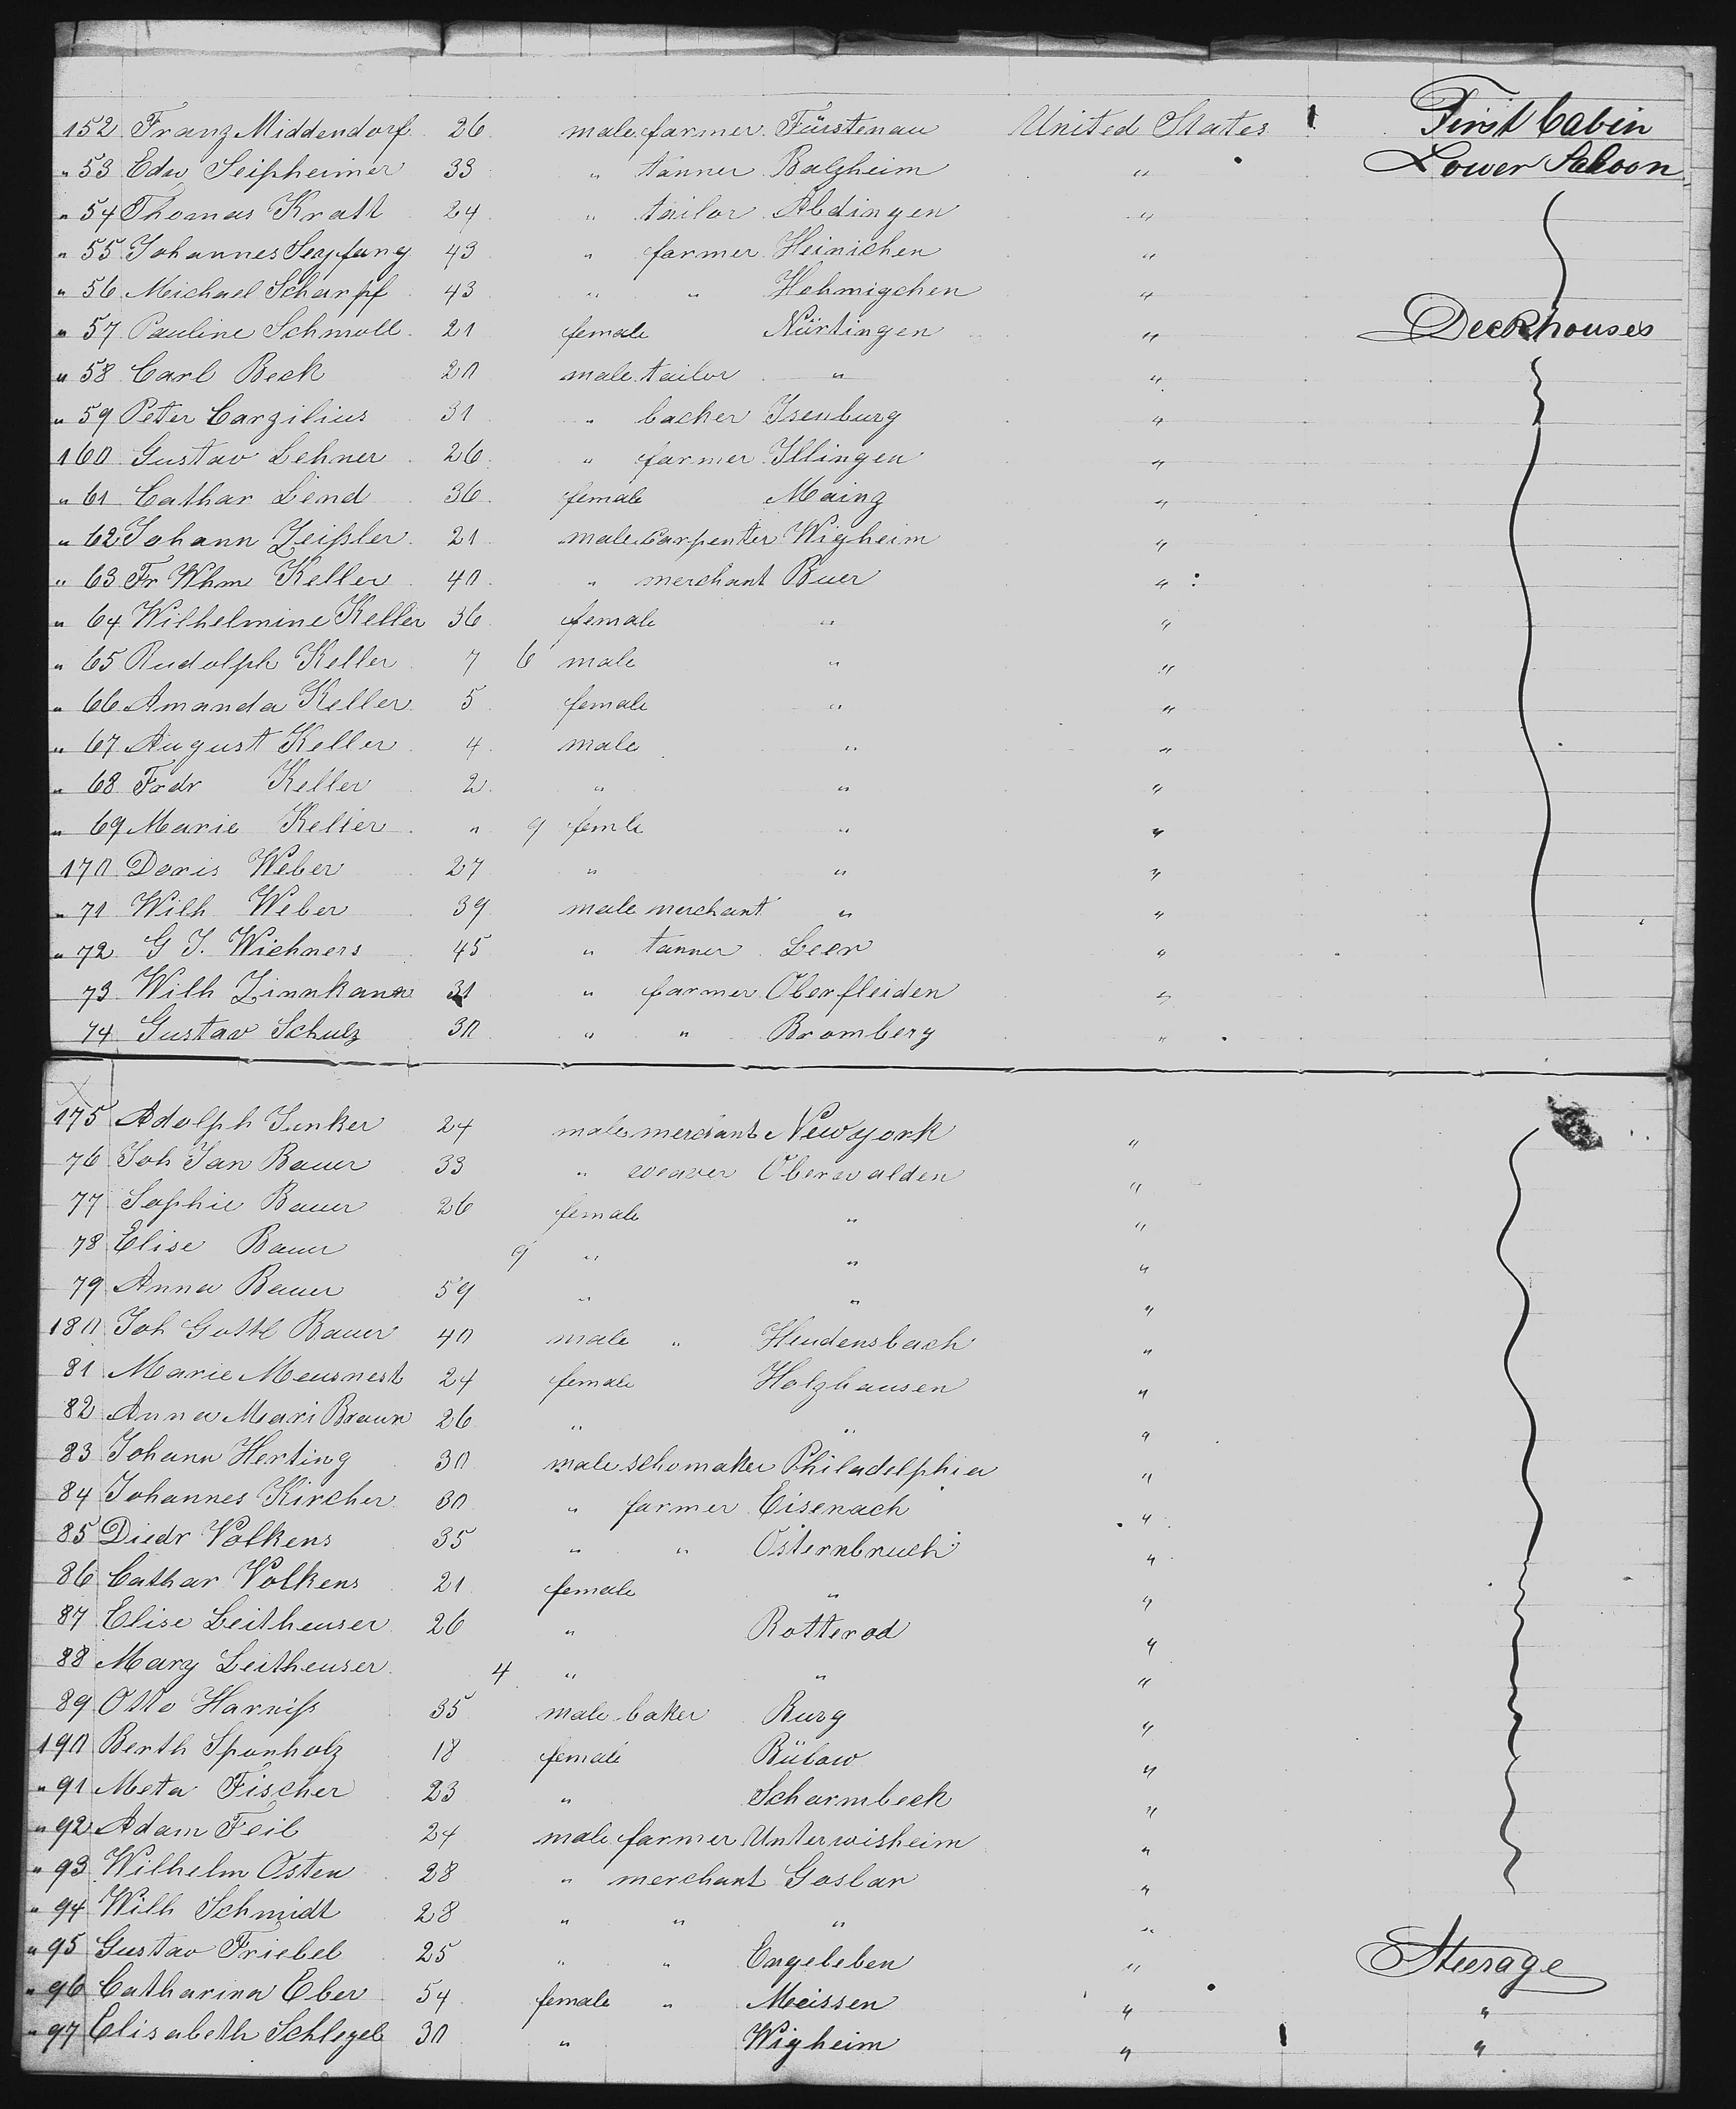 152 Franz Middendorf 26 male farmer Fürstenau United States First Cabin
" 53 Edw Seipheimer 33 " tanner Balzheim " Lower Saloon
" 54 Thomas Kratt 24 " tailor Aldingen "
" 55 Johannes Seyfang 43 " farmer Heinichen "
" 56 Michael Scharpf 43 " " Hehmigchen "
" 57 Pauline Schmoll 21 female Nürtingen " Deckhouses
" 58 Carl Beck 20 male tailor " "
" 59 Peter Carzilius 31 " backer Isenburg "
160 Gustav Lehner 26 " farmer Illingen "
" 61 Cathar Lind 36 female Mainz "
" 62 Johann Zeißler 21 male carpenter Wigheim "
" 63 Fr Whm Keller 40 " merchant Buer "
" 64 Wilhelmine Keller 36 female " "
" 65 Rudolph Keller 7 6 male " "
" 66 Amanda Keller 5 female " "
" 67 August Keller 4 male " "
" 68 Frdr Keller 2 " " "
" 69 Marie Keller " 9 femle " "
170 Doris Weber 27 " " "
" 71 Wilh Weber 39 male merchant " "
" 72 G J. Wichners 45 " tanner Leer "
73 Wilh Zinnkann 31 " farmer Oberfleiden "
74 Gustav Schulz 30 " " Bromberg "
175 Adolph Junker 24 male merchant Newyork "
76 Joh Jan Bauer 33 " weaver Oberwalden "
77 Sophie Bauer 26 female " "
78 Elise Bauer 9 " " "
79 Anna Bauer 59 " " "
180 Joh Gottl Bauer 40 male " Heudensbach "
81 Marie Meusnest 24 female Holzhausen "
82 Anna Mari Braun 26 " " "
83 Johann Herting 30 male schomaker Philadelphia "
84 Johannes Kircher 30 " farmer Eisenach "
85 Diedr Volkens 35 " " Osternbruch "
86 Cathar Volkens 21 female " "
87 Elise Leitheuser 26 " Rotterod "
88 Mary Leitheuser 4 " " "
89 Otto Harniss 35 male baker Burg "
190 Berth Sponholz 18 female Bülow "
" 91 Meta Fischer 23 " Scharmbeck "
" 92 Adam Feil 24 male farmer Unterwisheim "
" 93 Wilhelm Osten 28 " merchant Goslar "
" 94 Wilh Schmidt 28 " " " "
" 95 Gustav Friebel 25 " " Engeleben " Steerage
" 96 Catharina Eber 54 female " Meissen " "
" 97 Elisabeth Schlegel 30 " Wigheim " "